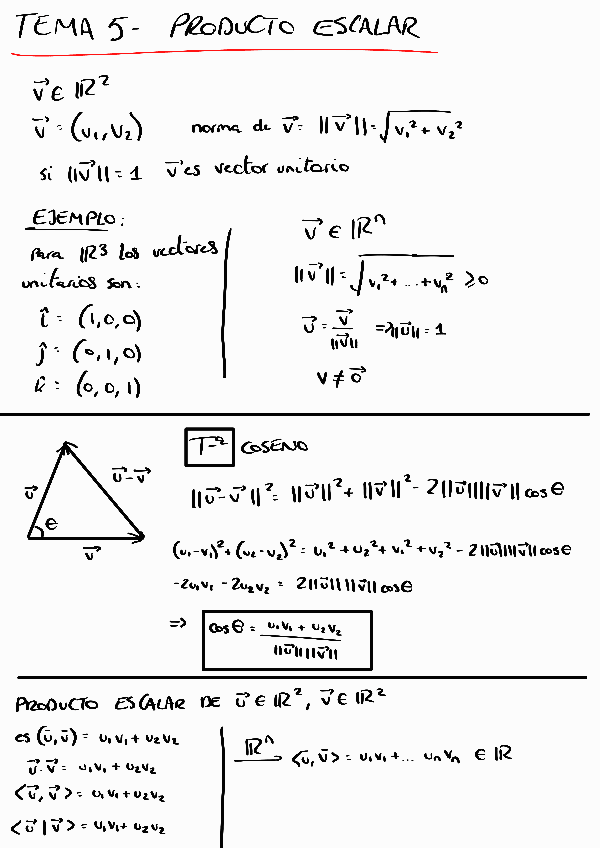 TEMA 5- PRODUCTO ESCALAR
v⃗ ∈ ℝ²
v⃗ = (v₁, v₂) norma de v⃗ = ||v⃗|| = √(v₁² + v₂²)
si ||v⃗|| = 1 v⃗ es vector unitario
EJEMPLO:
para ℝ³ los vectores
unitarios son:
î = (1,0,0)
ĵ = (0,1,0)
k̂ = (0,0,1)
v⃗ ∈ ℝⁿ
||v⃗|| = √(v₁² + ... + vₙ²) ≥ 0
u⃗ = v⃗/||v⃗|| ⇒ ||u⃗|| = 1
v ≠ 0⃗
Tª COSENO
u⃗
u⃗-v⃗
θ
v⃗
||u⃗-v⃗||² = ||u⃗||² + ||v⃗||² - 2||u⃗||||v⃗|| cos θ
(u₁-v₁)² + (u₂-v₂)² = u₁² + u₂² + v₁² + v₂² - 2||u⃗||||v⃗|| cos θ
-2u₁v₁ - 2u₂v₂ = 2||u⃗||||v⃗|| cos θ
⇒ cos θ = (u₁v₁ + u₂v₂)/(||u⃗||||v⃗||)
PRODUCTO ESCALAR DE u⃗ ∈ ℝ², v⃗ ∈ ℝ²
es (u⃗, v⃗) = u₁v₁ + u₂v₂
u⃗·v⃗ = u₁v₁ + u₂v₂
<u⃗, v⃗> = u₁v₁ + u₂v₂
<u⃗ | v⃗> = u₁v₁ + u₂v₂
ℝⁿ <u⃗, v⃗> = u₁v₁ + ... uₙvₙ ∈ ℝ